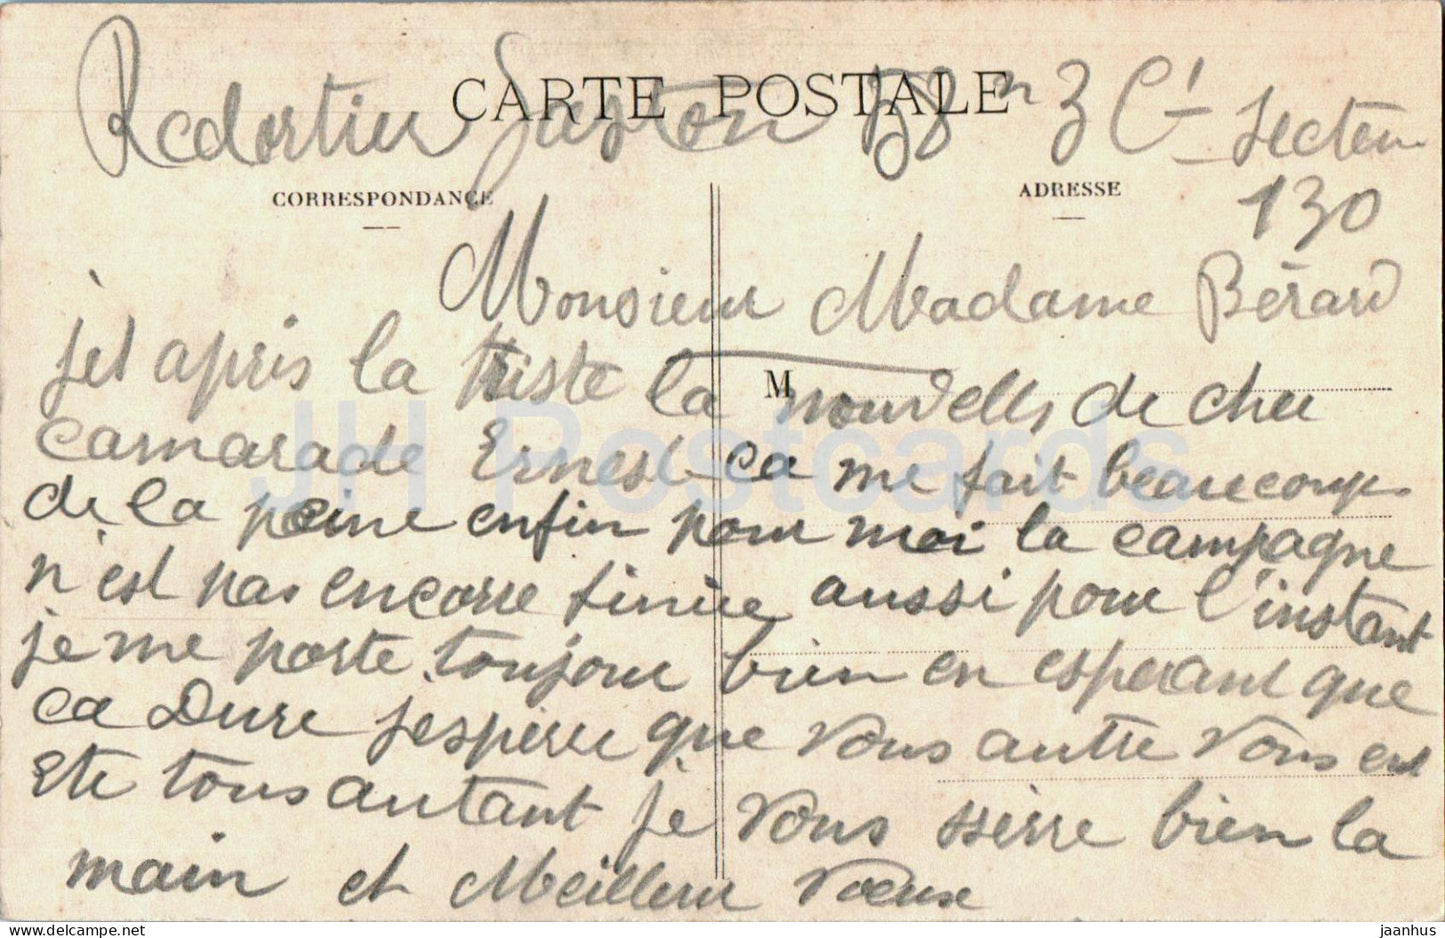 CARTE POSTALE
Redortier Gaston 158 n 3 Cie Secteur
130
CORRESPONDANCE
ADRESSE
Monsieur Madame Bérard
M
jé apris la triste la nouvelles de cher
camarade Ernest ca me fait beaucoup
de la peine enfin pour moi la campagne
n'est pas encorre finiee aussi pour l'instant
je me porte toujour bien en esperant que
ca Dure j'esperre que vous autre vous
ete tous autant je vous sserre bien la
main et Meilleur vœux
JH Postcards
jaanhus - delcampe.net